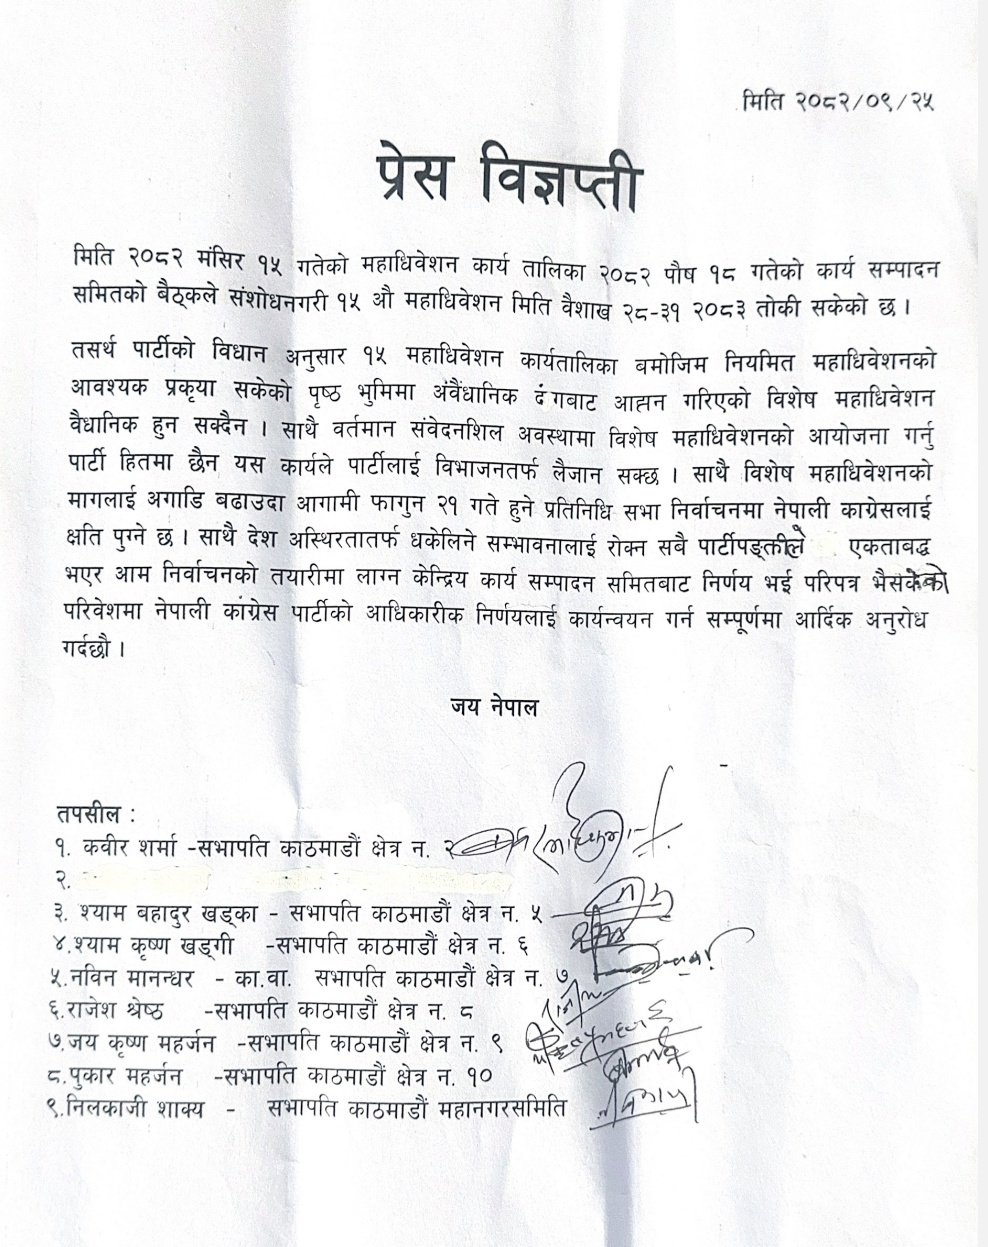 मिति २०८२/०९/२५
प्रेस विज्ञप्ती
मिति २०८२ मंसिर १५ गतेको महाधिवेशन कार्य तालिका २०८२ पौष १८ गतेको कार्य सम्पादन
समितको बैठ्कले संशोधनगरी १५ औ महाधिवेशन मिति वैशाख २८-३१ २०८३ तोकी सकेको छ ।
तसर्थ पार्टीको विधान अनुसार १५ महाधिवेशन कार्यतालिका बमोजिम नियमित महाधिवेशनको
आवश्यक प्रकृया सकेको पृष्ठ भुमिमा अंवैंधानिक दंगबाट आह्मन गरिएको विशेष महाधिवेशन
वैधानिक हुन सक्दैन । साथै वर्तमान संवेदनशिल अवस्थामा विशेष महाधिवेशनको आयोजना गर्नु
पार्टी हितमा छैन यस कार्यले पार्टीलाई विभाजनतर्फ लैजान सक्छ । साथै विशेष महाधिवेशनको
मागलाई अगाडि बढाउदा आगामी फागुन २१ गते हुने प्रतिनिधि सभा निर्वाचनमा नेपाली काग्रेसलाई
क्षति पुग्ने छ । साथै देश अस्थिरतातर्फ धकेलिने सम्भावनालाई रोक्न सबै पार्टीपङ्तीले एकताबद्ध
भएर आम निर्वाचनको तयारीमा लाग्न केन्द्रिय कार्य सम्पादन समितबाट निर्णय भई परिपत्र भैसकेको
परिवेशमा नेपाली कांग्रेस पार्टीको आधिकारीक निर्णयलाई कार्यन्वयन गर्न सम्पूर्णमा आर्दिक अनुरोध
गर्दछौ ।
जय नेपाल
तपसील :
१. कवीर शर्मा -सभापति काठमाडौं क्षेत्र न. २
२.
३. श्याम बहादुर खड्का - सभापति काठमाडौं क्षेत्र न. ५
४.श्याम कृष्ण खड्गी -सभापति काठमाडौं क्षेत्र न. ६
५.नविन मानन्धर - का.वा. सभापति काठमाडौं क्षेत्र न. ७
६.राजेश श्रेष्ठ -सभापति काठमाडौं क्षेत्र न. ८
७.जय कृष्ण महर्जन -सभापति काठमाडौं क्षेत्र न. ९
८.पुकार महर्जन -सभापति काठमाडौं क्षेत्र न. १०
९.निलकाजी शाक्य - सभापति काठमाडौं महानगरसमिति